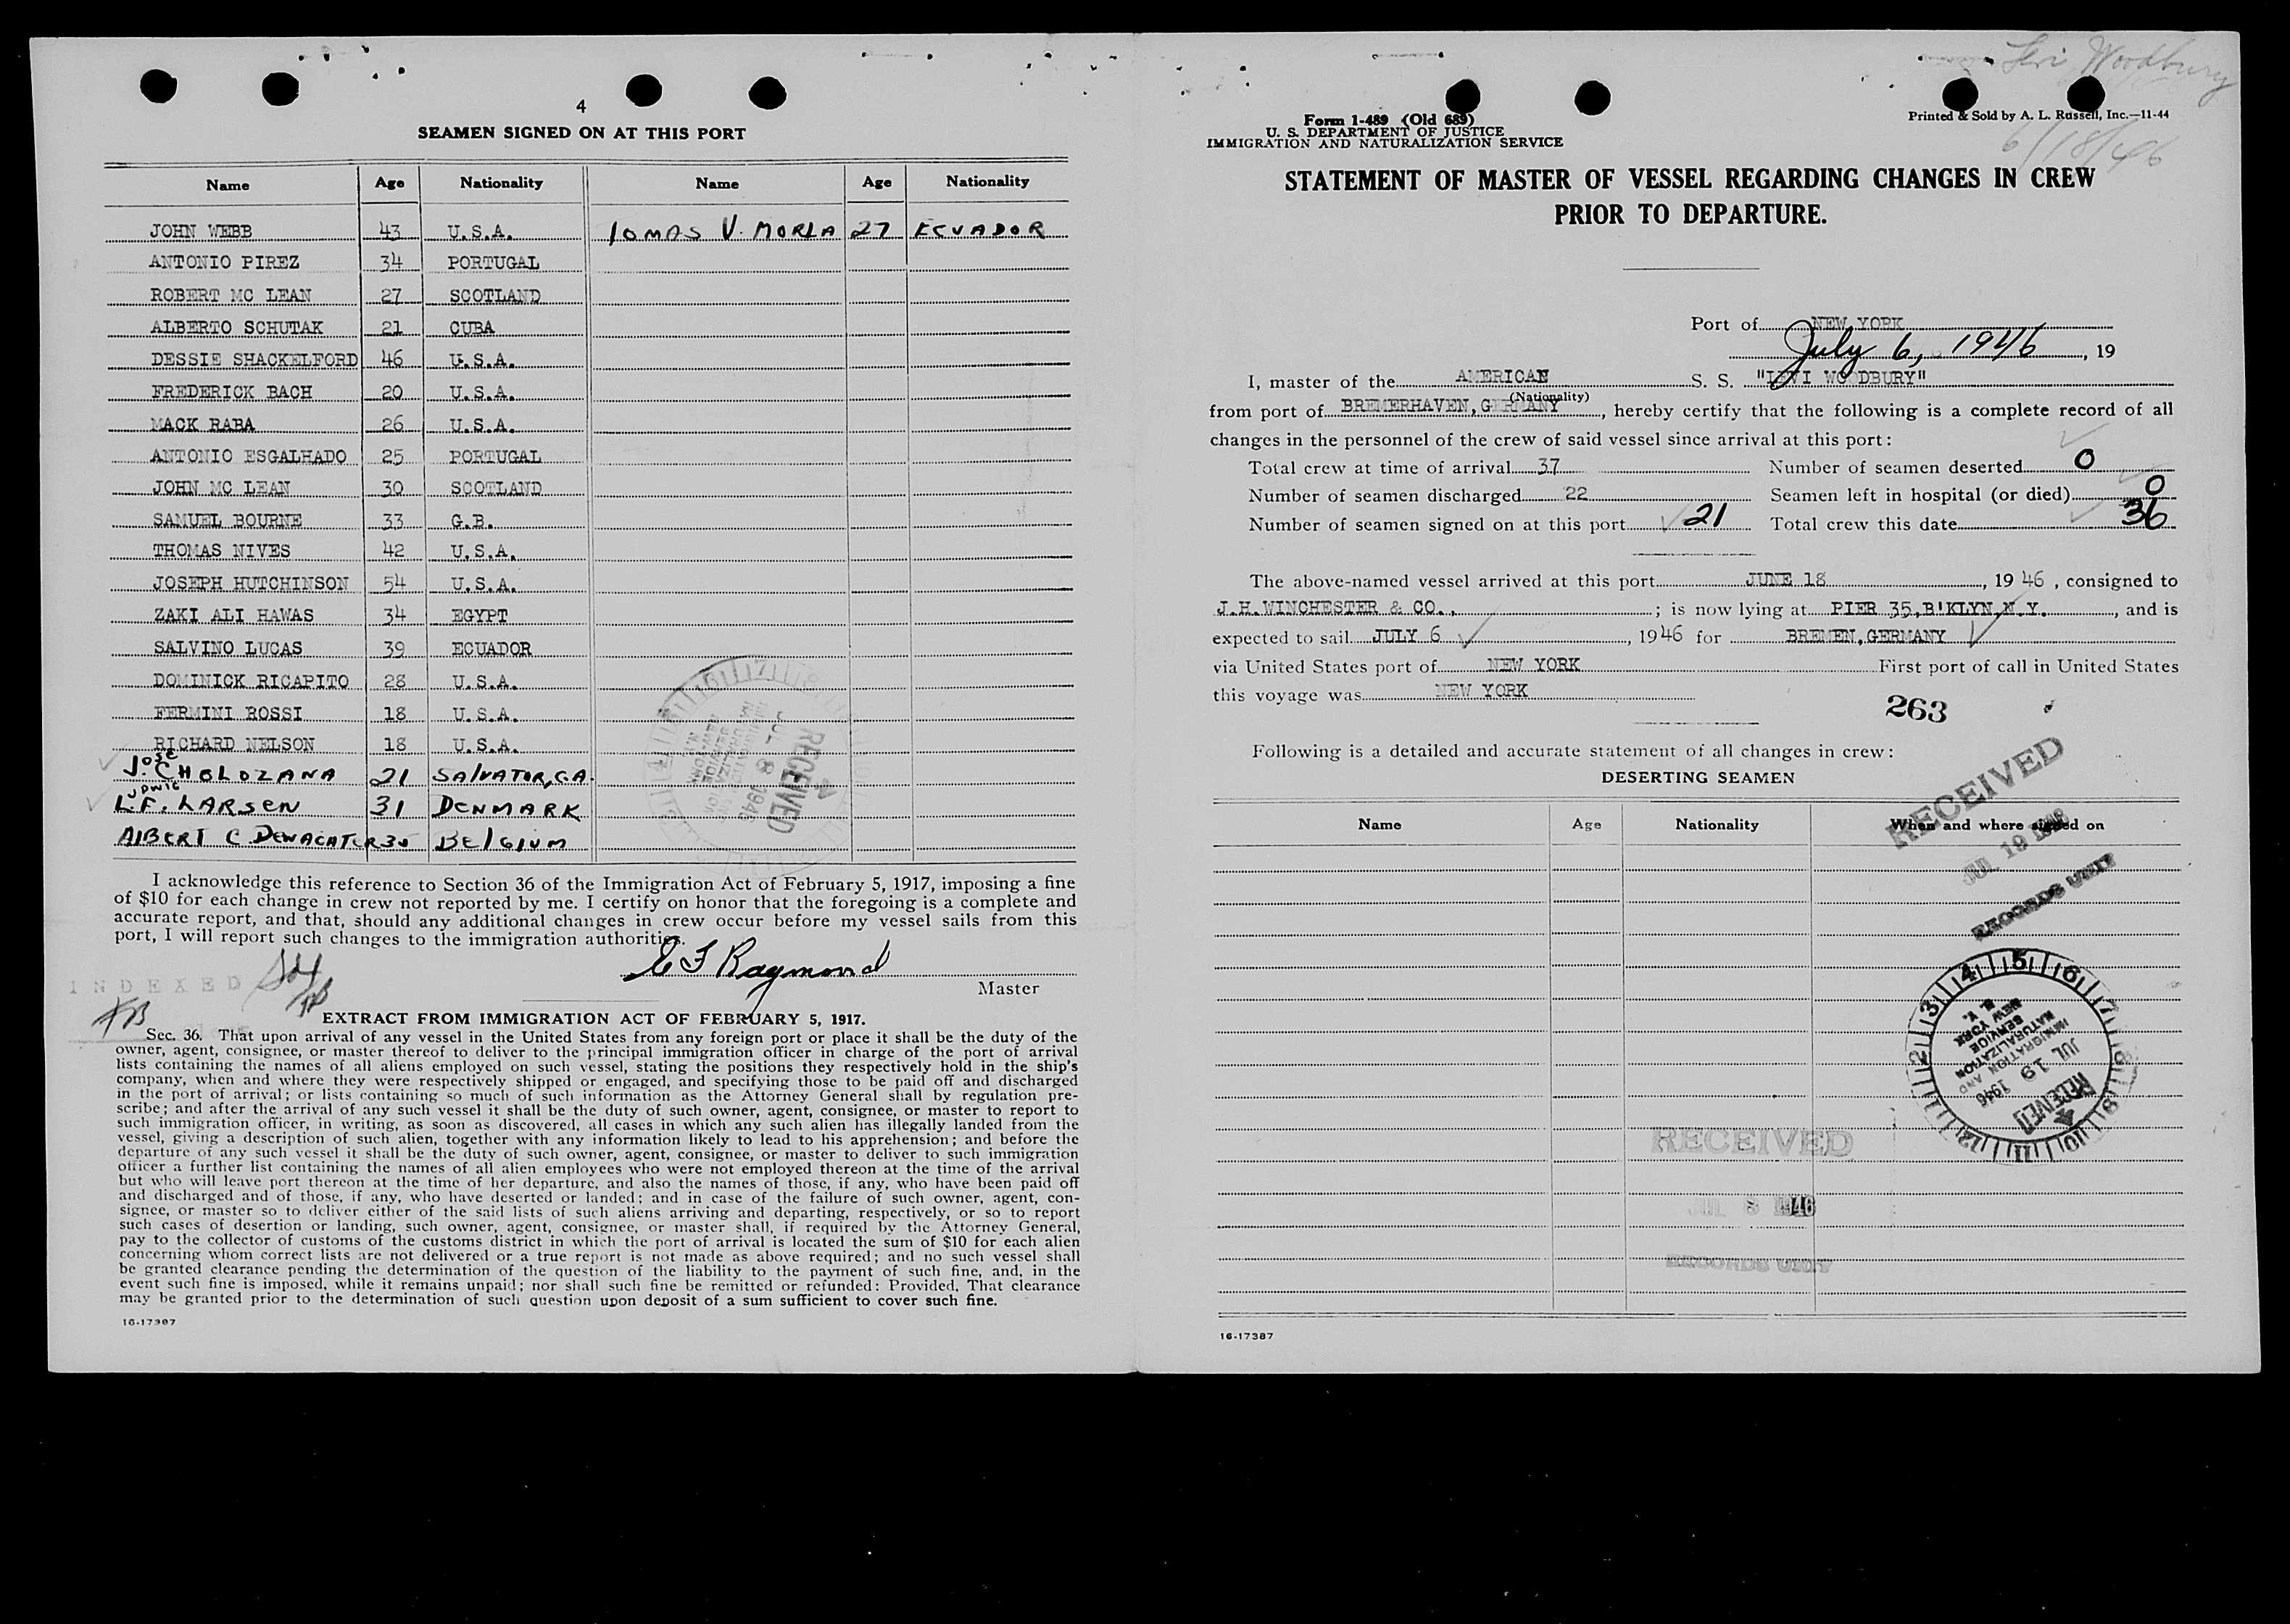 4
SEAMEN SIGNED ON AT THIS PORT
Name Age Nationality Name Age Nationality
JOHN WEBB 43 U.S.A. TOMAS V. MORLA 27 ECUADOR
ANTONIO PIREZ 34 PORTUGAL
ROBERT MC LEAN 27 SCOTLAND
ALBERTO SCHUTAK 21 CUBA
DESSIE SHACKELFORD 46 U.S.A.
FREDERICK BACH 20 U.S.A.
MACK RABA 26 U.S.A.
ANTONIO ESGALHADO 25 PORTUGAL
JOHN MC LEAN 30 SCOTLAND
SAMUEL BOURNE 33 G.B.
THOMAS NIVES 42 U.S.A.
JOSEPH HUTCHINSON 54 U.S.A.
ZAKI ALI HAWAS 34 EGYPT
SALVINO LUCAS 39 ECUADOR
DOMINICK RICAPITO 28 U.S.A.
FERMINI ROSSI 18 U.S.A.
RICHARD NELSON 18 U.S.A.
JOSE
J. CHOLOZANA 21 SALVATOR, C.A.
L.F. LARSEN 31 DENMARK
ALBERT C. DEWACHTER BELGIUM
RECEIVED
JUL 8 1946
I acknowledge this reference to Section 36 of the Immigration Act of February 5, 1917, imposing a fine
of $10 for each change in crew not reported by me. I certify on honor that the foregoing is a complete and
accurate report, and that, should any additional changes in crew occur before my vessel sails from this
port, I will report such changes to the immigration authorities.
E F Raymond
Master
INDEXED
EXTRACT FROM IMMIGRATION ACT OF FEBRUARY 5, 1917.
Sec. 36. That upon arrival of any vessel in the United States from any foreign port or place it shall be the duty of the
owner, agent, consignee, or master thereof to deliver to the principal immigration officer in charge of the port of arrival
lists containing the names of all aliens employed on such vessel, stating the positions they respectively hold in the ship's
company, when and where they were respectively shipped or engaged, and specifying those to be paid off and discharged
in the port of arrival; or lists containing so much of such information as the Attorney General shall by regulation pre-
scribe; and after the arrival of any such vessel it shall be the duty of such owner, agent, consignee, or master to report to
such immigration officer, in writing, as soon as discovered, all cases in which any such alien has illegally landed from the
vessel, giving a description of such alien, together with any information likely to lead to his apprehension; and before the
departure of any such vessel it shall be the duty of such owner, agent, consignee, or master to deliver to such immigration
officer a further list containing the names of all alien employees who were not employed thereon at the time of the arrival
but who will leave port thereon at the time of her departure, and also the names of those, if any, who have been paid off
and discharged and of those, if any, who have deserted or landed; and in case of the failure of such owner, agent, con-
signee, or master so to deliver either of the said lists of such aliens arriving and departing, respectively, or so to report
such cases of desertion or landing, such owner, agent, consignee, or master shall, if required by the Attorney General,
pay to the collector of customs of the customs district in which the port of arrival is located the sum of $10 for each alien
concerning whom correct lists are not delivered or a true report is not made as above required; and no such vessel shall
be granted clearance pending the determination of the question of the liability to the payment of such fine, and, in the
event such fine is imposed, while it remains unpaid; nor shall such fine be remitted or refunded: Provided, That clearance
may be granted prior to the determination of such question upon deposit of a sum sufficient to cover such fine.
16-17387
Levi Woodbury
6/18/46
Form 1-489 (Old 689)
U. S. DEPARTMENT OF JUSTICE
IMMIGRATION AND NATURALIZATION SERVICE
Printed & Sold by A. L. Russell, Inc.—11-44
STATEMENT OF MASTER OF VESSEL REGARDING CHANGES IN CREW
PRIOR TO DEPARTURE.
Port of NEW YORK
July 6, 1946, 19
I, master of the AMERICAN S. S. "LEVI WOODBURY"
(Nationality)
from port of BREMERHAVEN, GERMANY, hereby certify that the following is a complete record of all
changes in the personnel of the crew of said vessel since arrival at this port:
Total crew at time of arrival 37 Number of seamen deserted 0
Number of seamen discharged 22 Seamen left in hospital (or died) 0
Number of seamen signed on at this port 21 Total crew this date 36
The above-named vessel arrived at this port JUNE 18, 1946, consigned to
J.H. WINCHESTER & CO., ; is now lying at PIER 35, B'KLYN, N.Y., and is
expected to sail JULY 6, 1946 for BREMEN, GERMANY
via United States port of NEW YORK First port of call in United States
this voyage was NEW YORK
263
Following is a detailed and accurate statement of all changes in crew:
DESERTING SEAMEN
Name Age Nationality When and where signed on
RECEIVED
JUL 19 1946
RECORDS UNIT
IMMIGRATION AND
NATURALIZATION
SERVICE
NEW YORK
N. Y.
JUL 19 1946
RECEIVED
RECEIVED
JUL 8 1946
RECORDS UNIT
16-17387